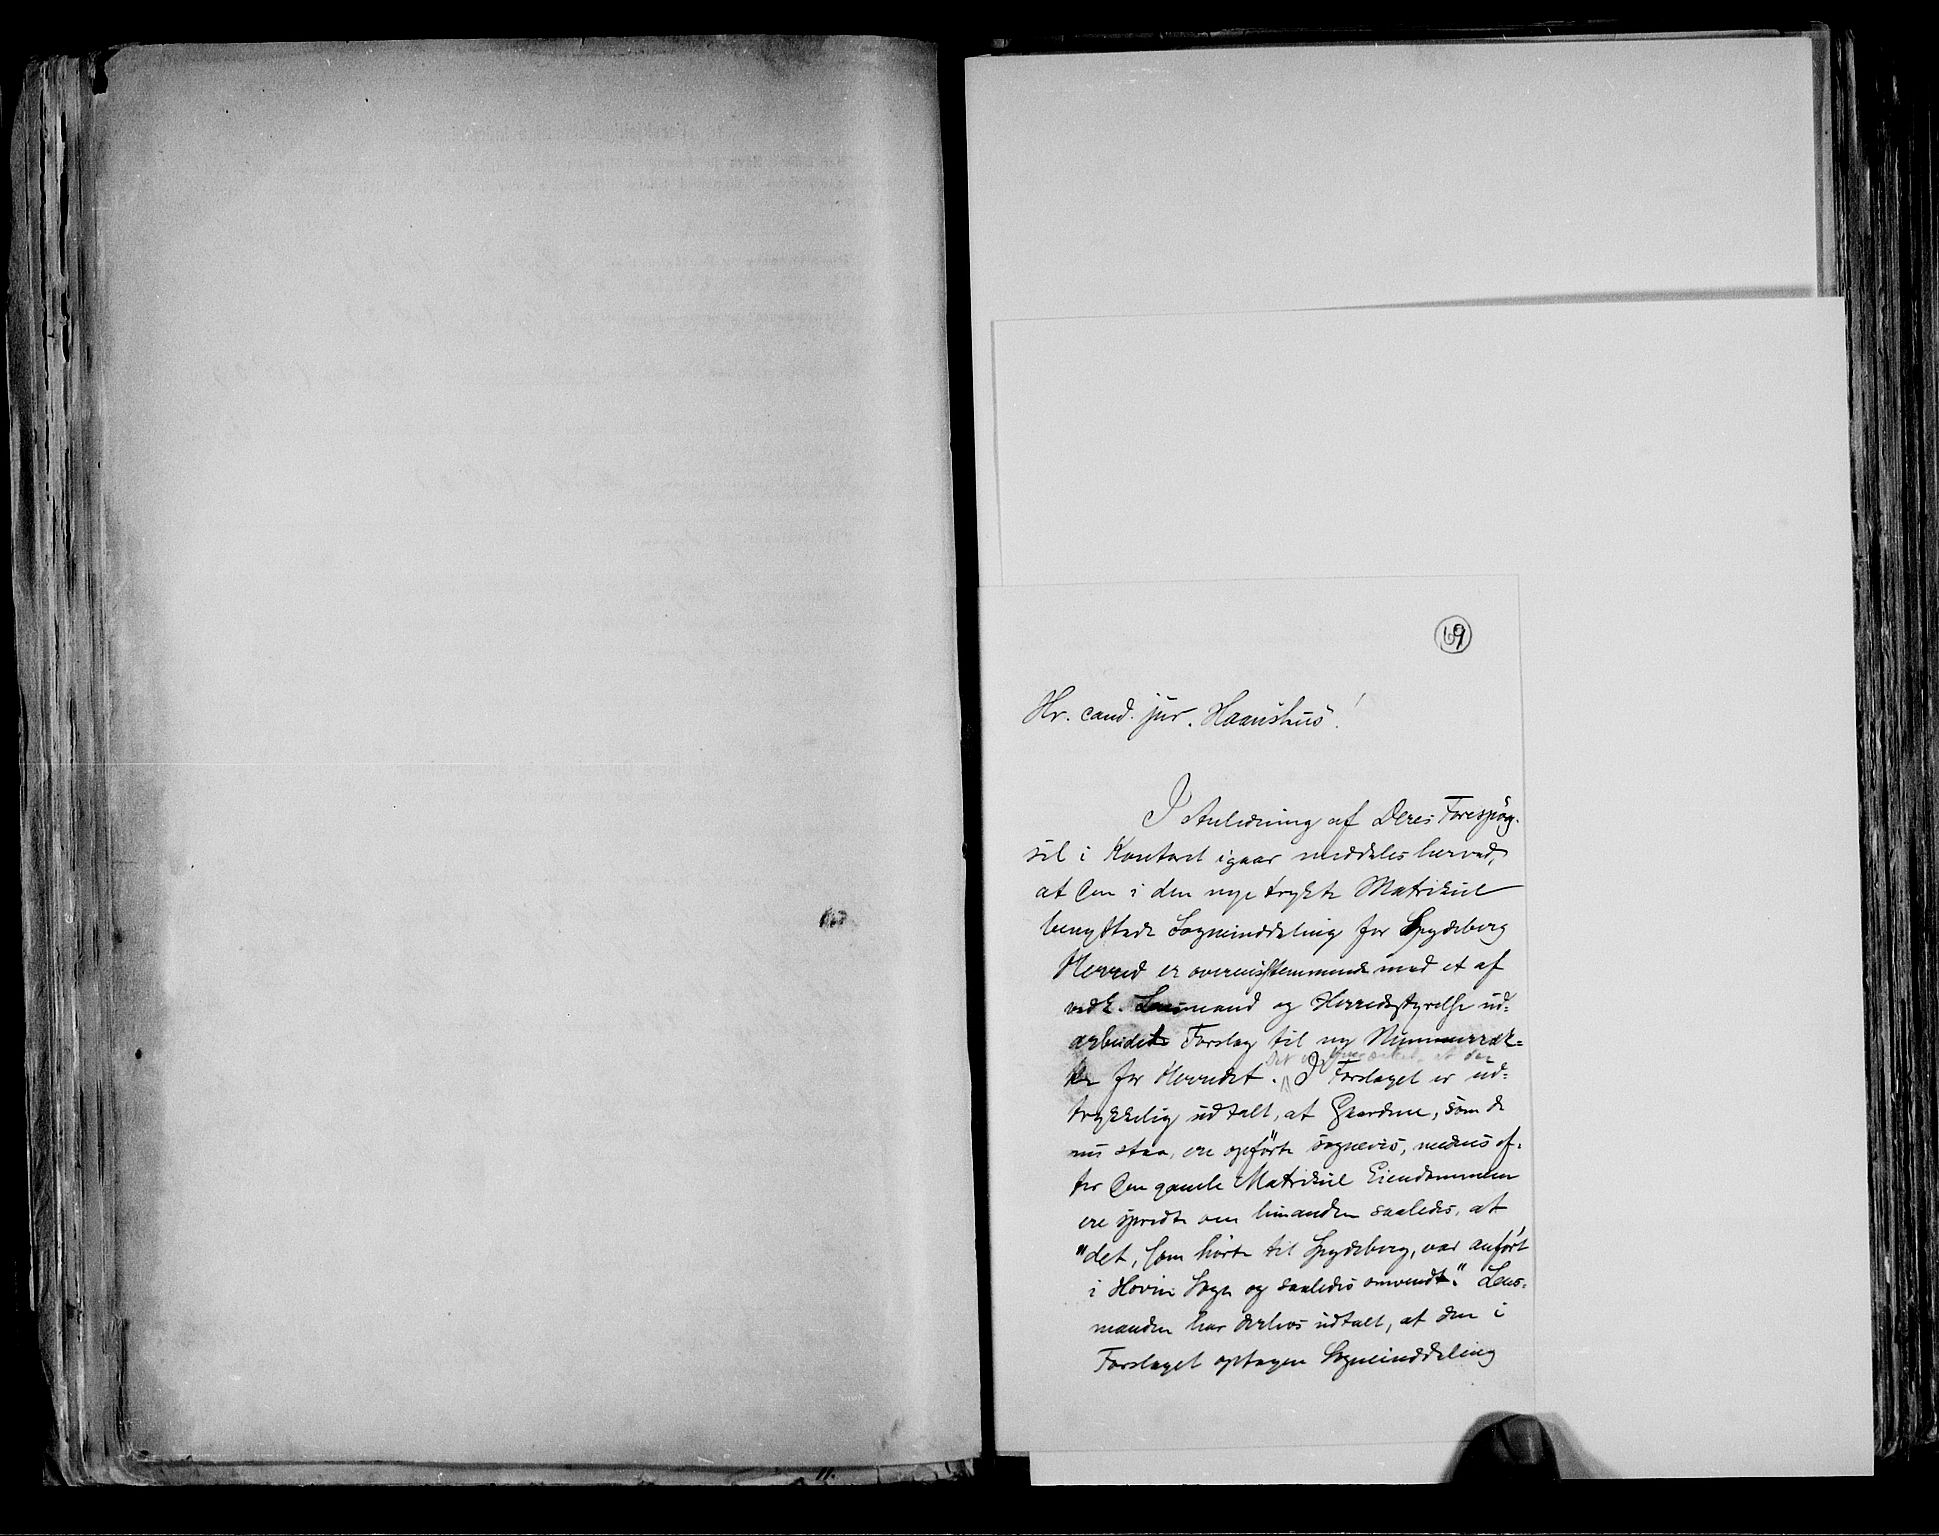 69
Hr. cand. jur. Haanshus!
I Anledning af Deres Forespøg-
sel i Kontoret igaar meddeles herved,
at den i den nye trykte Matrikul
benyttede Sogneinddeling for Spydeberg
Herred er overensstemmende med et af
vedk. Lensmand og Herredsstyrelse ud-
arbeidet Forslag til ny Nummerræk-
ke for Herredet. I Forslaget er ud-
trykkelig udtalt, at Gaardene, som de
nu staa, ere opførte sognevis, medens ef-
ter den gamle Matrikul Eiendommene
ere spredte om hinanden saaledes, at
"det, som hørte til Spydeberg, var anført
i Hovin Sogn og saaledes omvendt." Lens-
manden har derhos udtalt, at den i
Forslaget optagen Sogneinddeling